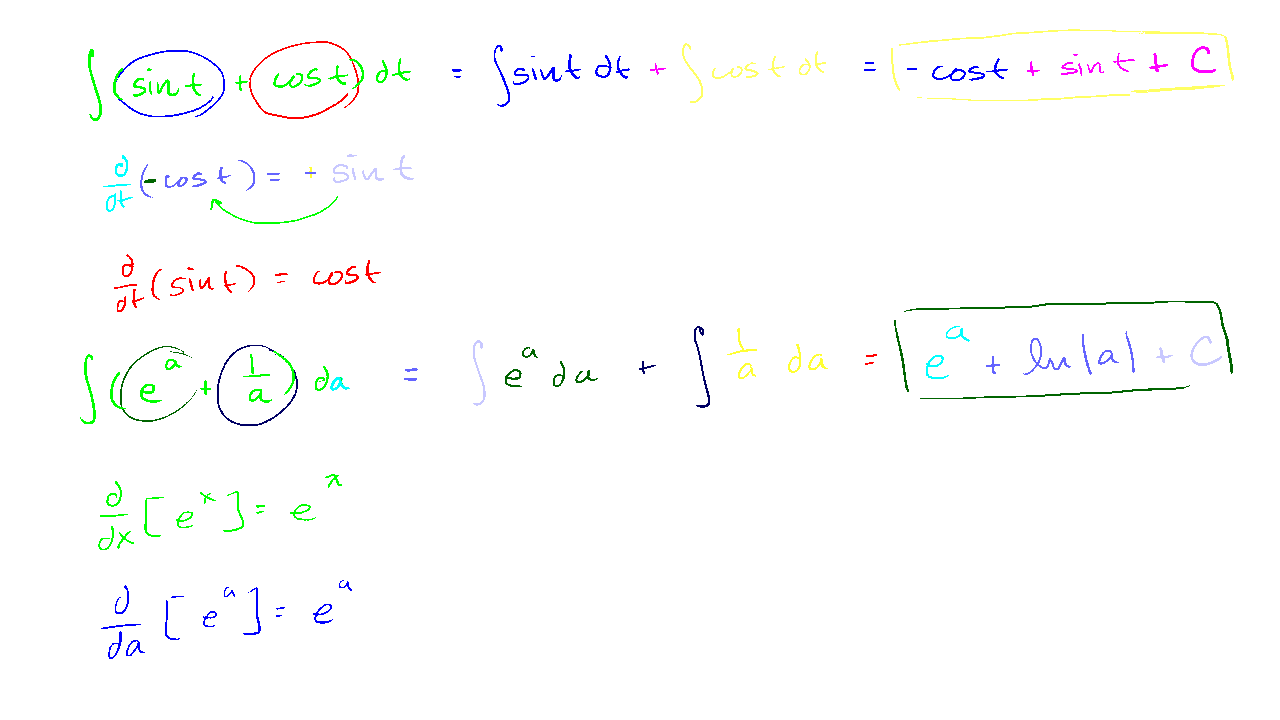 ∫(sin t + cos t) dt = ∫sin t dt + ∫cos t dt = - cos t + sin t + C
d/dt (-cos t) = + sin t
d/dt (sin t) = cos t
∫(e^a + 1/a) da = ∫ e^a da + ∫ 1/a da = e^a + ln|a| + C
d/dx [e^x] = e^x
d/da [e^a] = e^a